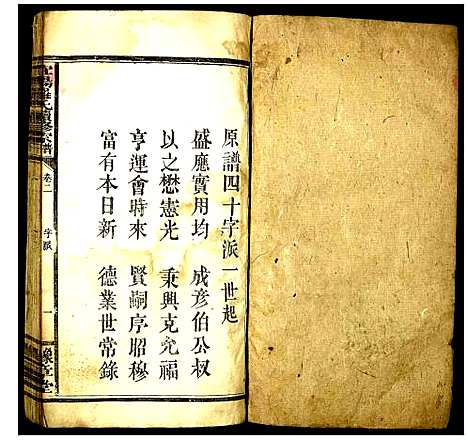 原譜四十字派一世起
盛應實用均 成彥伯公叔
以之懋憲光 秉興克允福
亨運會時來 賢嗣序昭穆
富有本日新 德業世常錄
氏續修家譜
卷二
字派
一
豫章堂